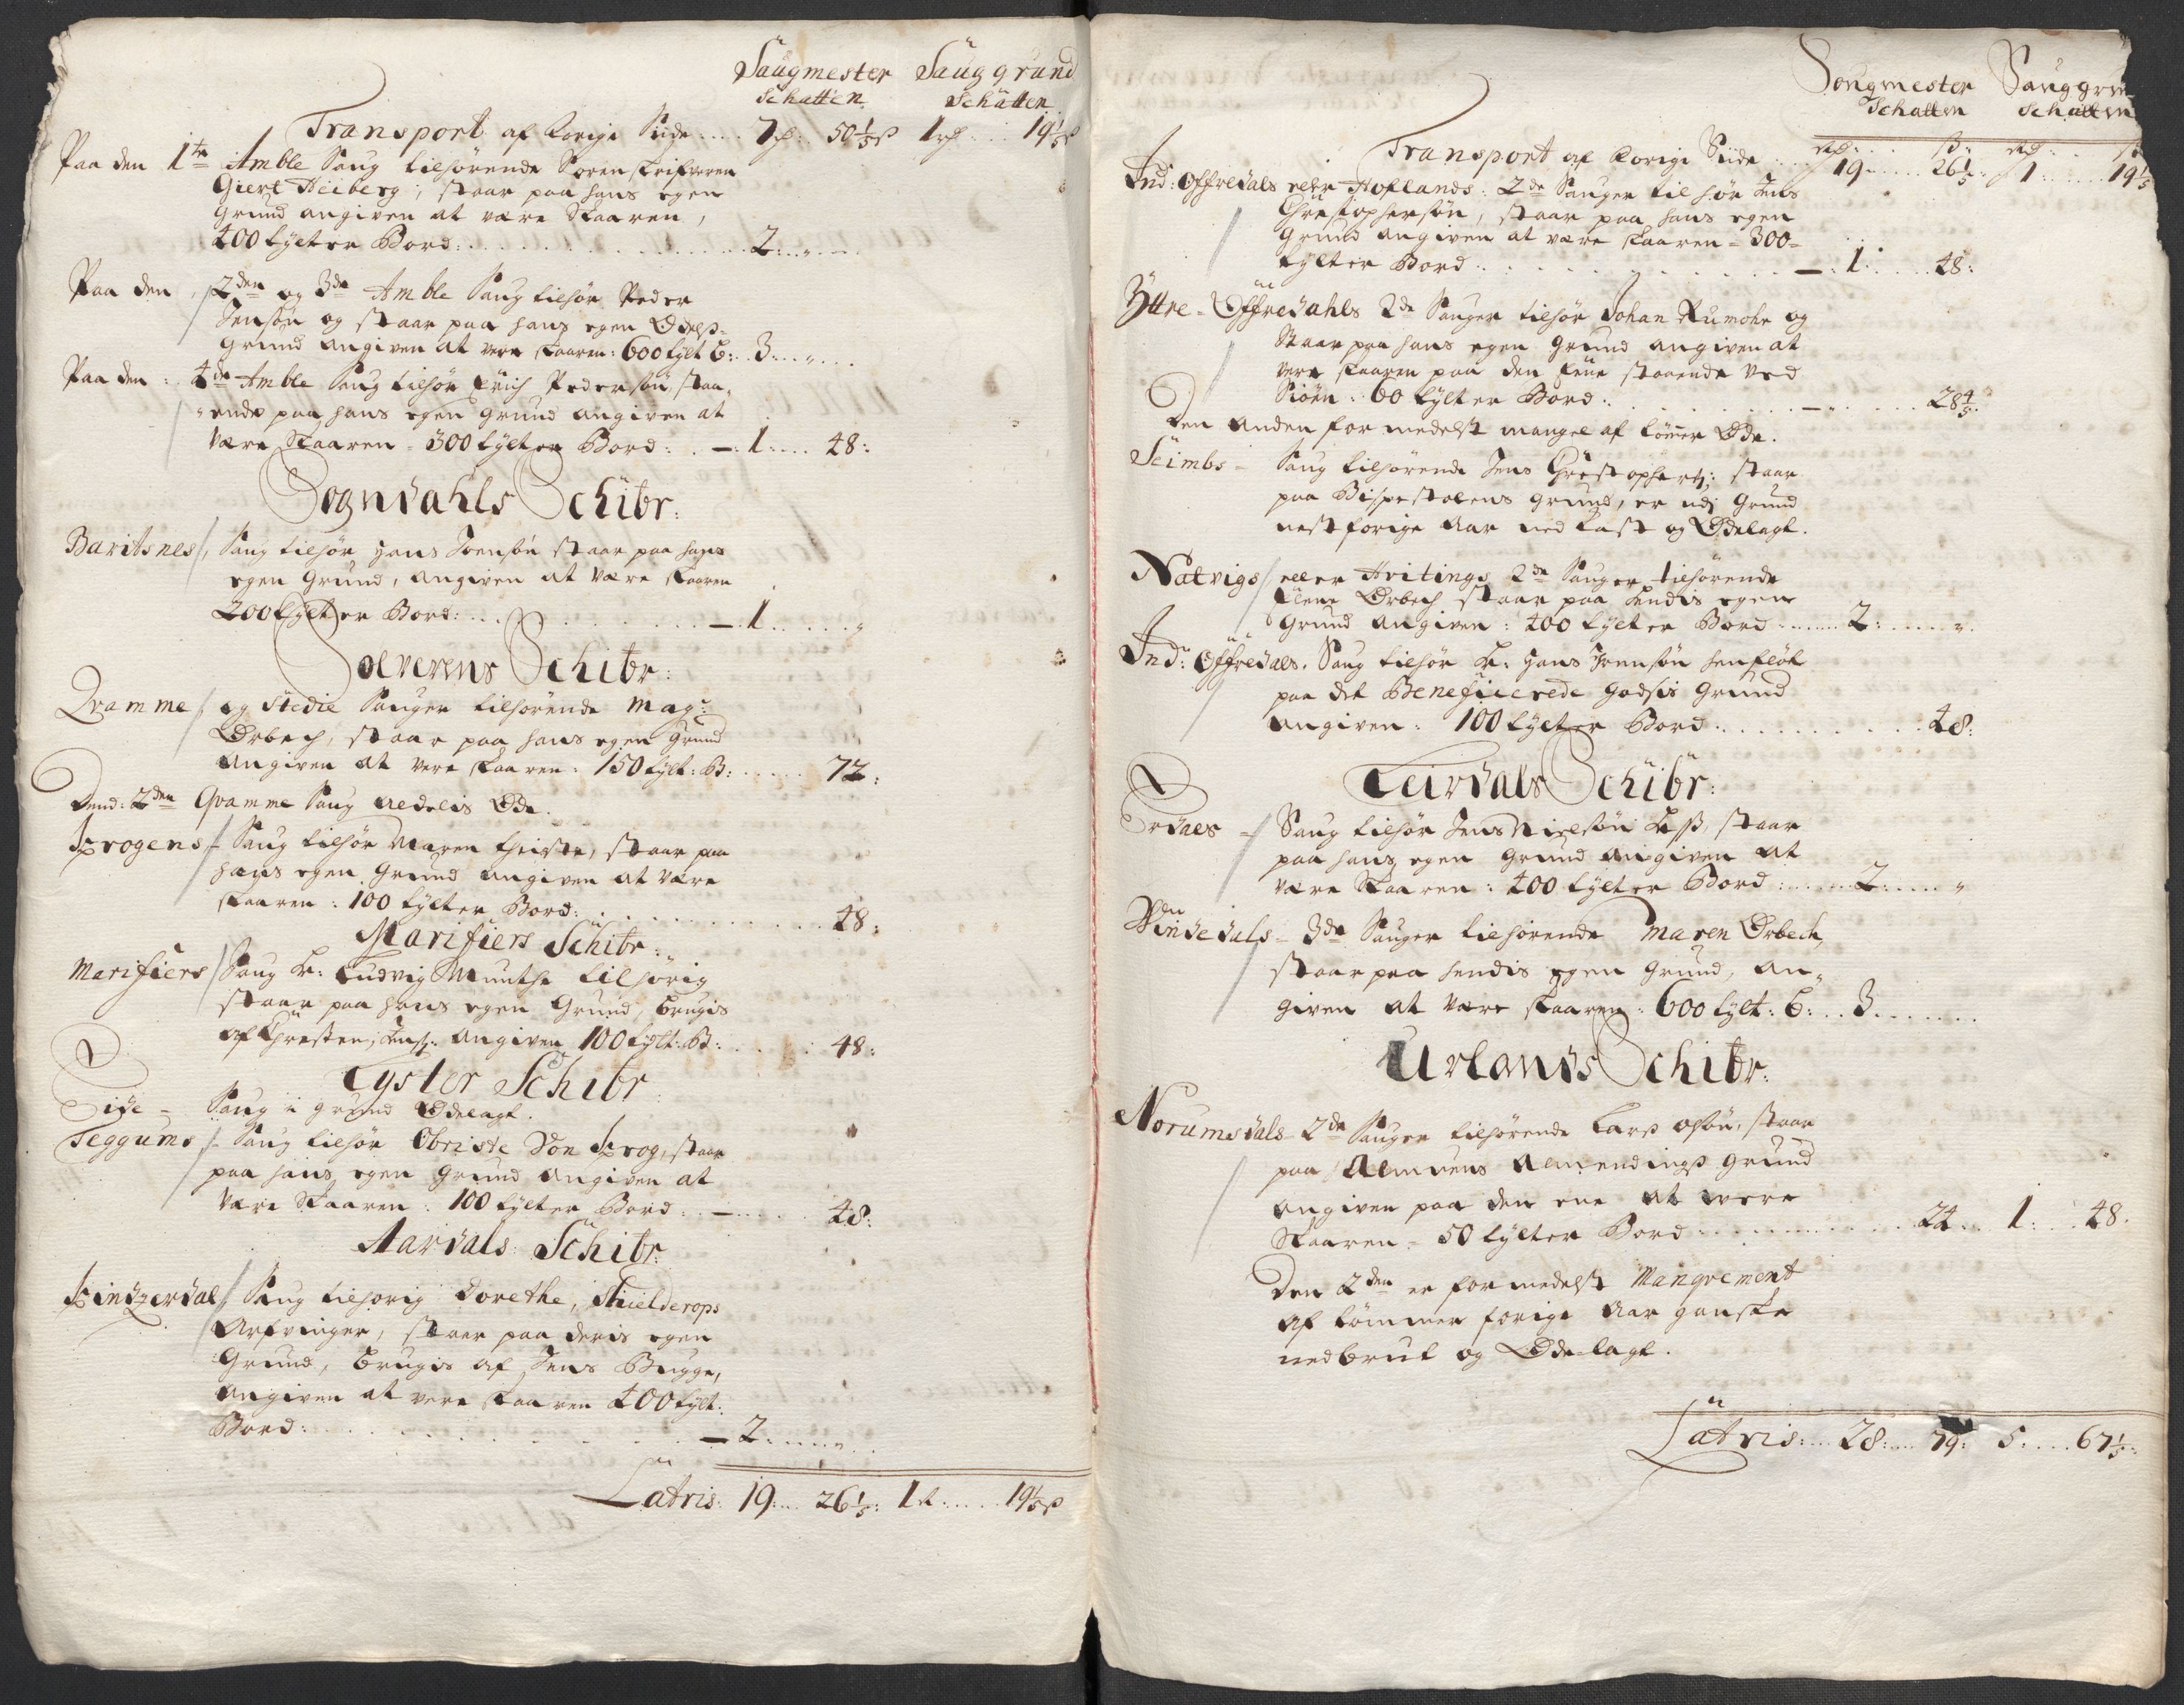 Saugmester Sauggrund
Schatten Schatten
Transport af forige Siide .... 7 rd: 50 1/5 ß 1 rd .. 19 1/5 ß
Paa den 1te Amble Saug tilhørende Sorenskrifveren
Giert Heiberg, staar paa hans egen
Grund angiven at være Skaaren,
400 tylter Bord: ... 2: ..
Paa den, 2den og 3de Amble Saug tilhør Peder
Jensøn og staar paa hans egen Odelß-
Grund angiven at vere skaaren: 600 tylt B: .. 3 ...
Paa den: 4de Amble Saug tilhør Erich Pedersøn, staa-
ende paa hans egen grund angiven at
være Skaaren - 300 tylter Bord: . - 1: ... 48:
Sogndahls Schibr:
Baritsnes, Saug tilhør Hans Joensøn staar paa hans
egen Grund, angiven at være skaaren
200 tylter Bord: ... - 1 ....
Solverens Schibr:
Qvamme og Stedie Sauger tilhørende Magr:
Ørbech, staar paa hans egen Grund
angiven at vere skaaren: 150 tylt: B: ..... 72:
Dend: 2den Qvamme Saug aldelis Øde.
Krogens - Saug tilhør Maren Theiste, staar paa
hans egen Grund angiven at være
skaaren: 100 tylter Bord: ..... 48:
Marifiers Schibr:
Marifiers Saug Hr: Ludvig Munthe tilhørig
staar paa hans egen Grund, brugis
af Christen Jens: angiven 100 tylt: B: ..... 48:
Lyster Schibr
Eide - Saug i grund Ødelagt.
Teggums - Saug tilhør Obriste Von Krog, staar
paa hans egen Grund angiven at
være Skaaren: 100 tylter Bord: - .... 48:
Aardals Schibr:
Kindzerdal, Saug tilhørig Dorethe, Skielderops
Arfvinger, staar paa deris egen
Grund, brugis af Jens Bugge,
angiven at vere skaaren 400 tylt:
Bord: ..... - 2: ....
Latris: 19: ... 26 1/5: 1 rd: .... 19 1/5 ß
Sougmester Sauggrun
Schatten Schatten
rd: ß: rd: ß
Transport af forige Siide ... 19 .... 26 1/5: 1 .... 19 1/5
Ind: Offredals eller Hoflands: 2de Sauger tilhør Jens
Christophersøn, staar paa hans egen
Grund angiven at være skaaren - 300-
tylter Bord: ..... - 1: .... 48:
Yttre - Offredahls 2de Sauger tilhør Johan Rumohr og
Staar paa hans egen Grund angiven at
vere skaaren paa den eene staaende Ved
Siøen: 60 tylter Bord: ..... - .... 28 4/5:
Den anden formedelst mangel af tømmer Øde.
Seimbs - Saug tilhørende Jens Christophers: staar
paa Bispestolens grund, er udj Grund
nest forige Aar ned kast og Ødelagt.
Natvigs eller Hvitings 2de Sauger tilhørende
Elene Ørbech staar paa hendis egen
Grund angiven: 400 tylter Bord ..... 2: .....
Ind: Offredals. Saug tilhør Hr: Hans Joensøn henfløt
paa det Beneficerede Godsis Grund
angiven: 100 tylter Bord: ..... 48:
Leirdals Schibr:
Erdals - Saug tilhør Jens Nielsøn, staar
paa hans egen Grund angiven at
være Skaaren: 400 tylter Bord: ..... 2: ....
Vindedals - 3de Sauger tilhørende Maren Ørbech
staar paa hendis egen Grund, an-
given at være skaaren: 600 tylt: B: .. 3 .....
Urlands Schibr:
Norumsdals - 2de Sauger tilhørende Larß Olsøn, staar
paa Almuens Almendingß Grund
angiven paa den ene at were
Skaaren - 50 tylter Bord ..... 24 ... 1: .. 48.
Den 2den er formedelst Manqvement
af tømmer forige Aar ganske
nedbrut og Ødelagt.
Latris: .... 28: ... 79: 5 .... 67 1/5: